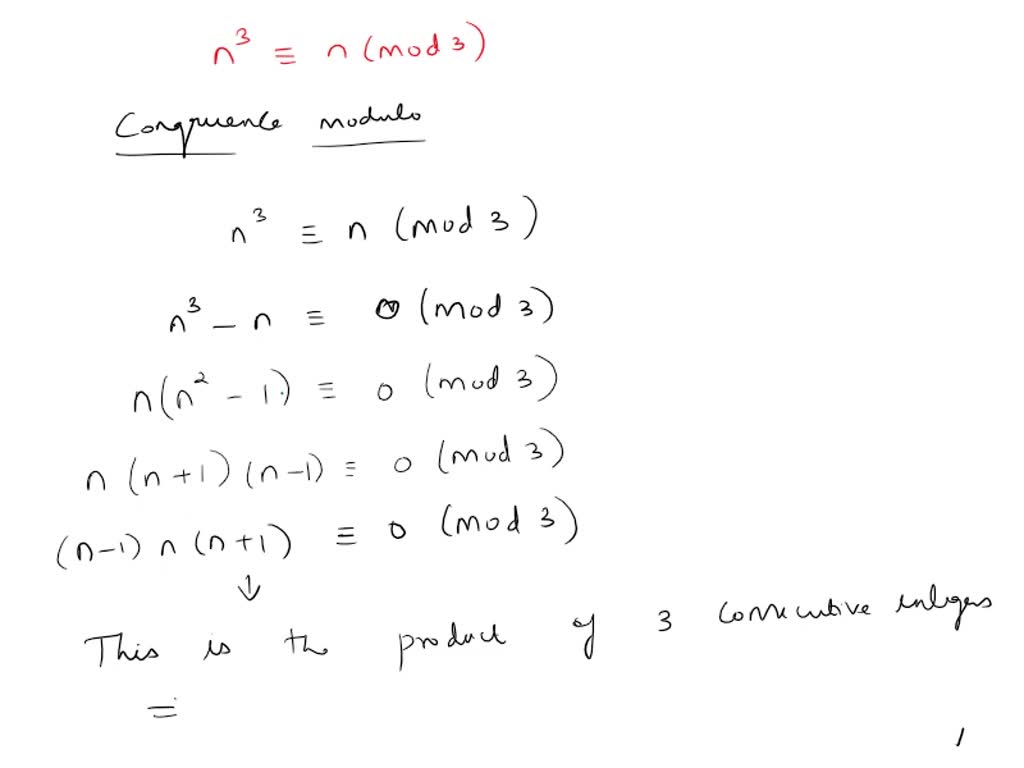 n³ ≡ n (mod 3)
Congruence modulo
n³ ≡ n (mod 3)
n³ − n ≡ 0 (mod 3)
n(n² − 1) ≡ 0 (mod 3)
n (n+1) (n−1) ≡ 0 (mod 3)
(n−1) n (n+1) ≡ 0 (mod 3)
↓
This is the product of 3 consecutive integers
=
1